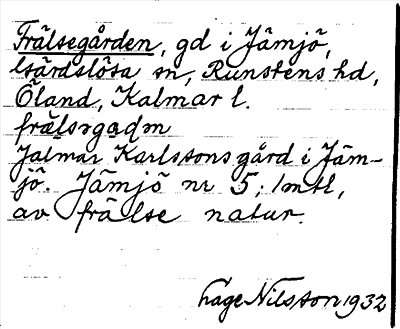 Frälsegården, gd i Jämjö,
Gärdslösa sn, Runstens hd,
Öland, Kalmar l.
frälsɘgaɖn
Jalmar Karlssons gård i Jäm-
jö. Jämjö nr 5; 1 mtl,
av frälse natur.
Åge Nilsson 1932